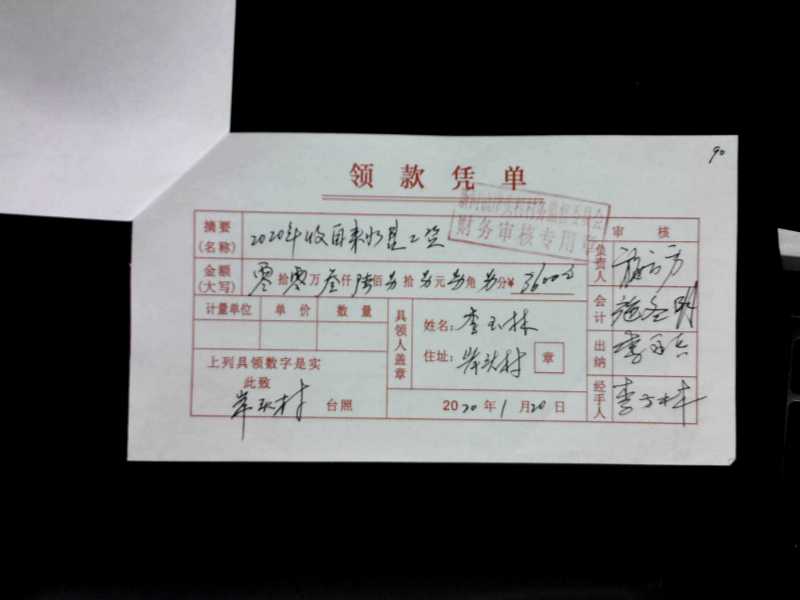 90
领款凭单
财务审核专用章
摘要(名称) 2020年收自来水费工资
审核
金额(大写) 零拾零万叁仟陆佰另拾另元另角另分¥ 3600元
负责人
计量单位 单价 数量
具领人盖章
姓名: 李玉林
会计
住址: 岸头村 章
出纳
上列具领数字是实
此致
岸头村 台照
2020年1月20日
经手人 李玉林